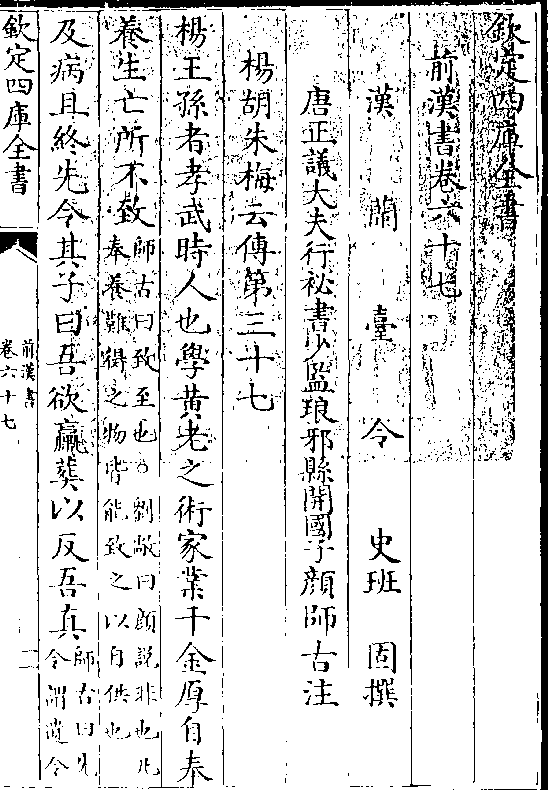 欽定四庫全書
前漢書卷六十七
漢蘭臺令史班固撰
唐正議大夫行祕書少監琅邪縣開國子顔師古注
楊胡朱梅云傳第三十七
楊王孫者孝武時人也學黄老之術家業千金厚自奉
養生亡所不致師古曰致至也劉敞曰顔說非也凡
奉養難得之物皆能致之以自供也
及病且終先令其子曰吾欲臝葬以反吾真師古曰先
令謂遺令
欽定四庫全書
前漢書
卷六十七
一